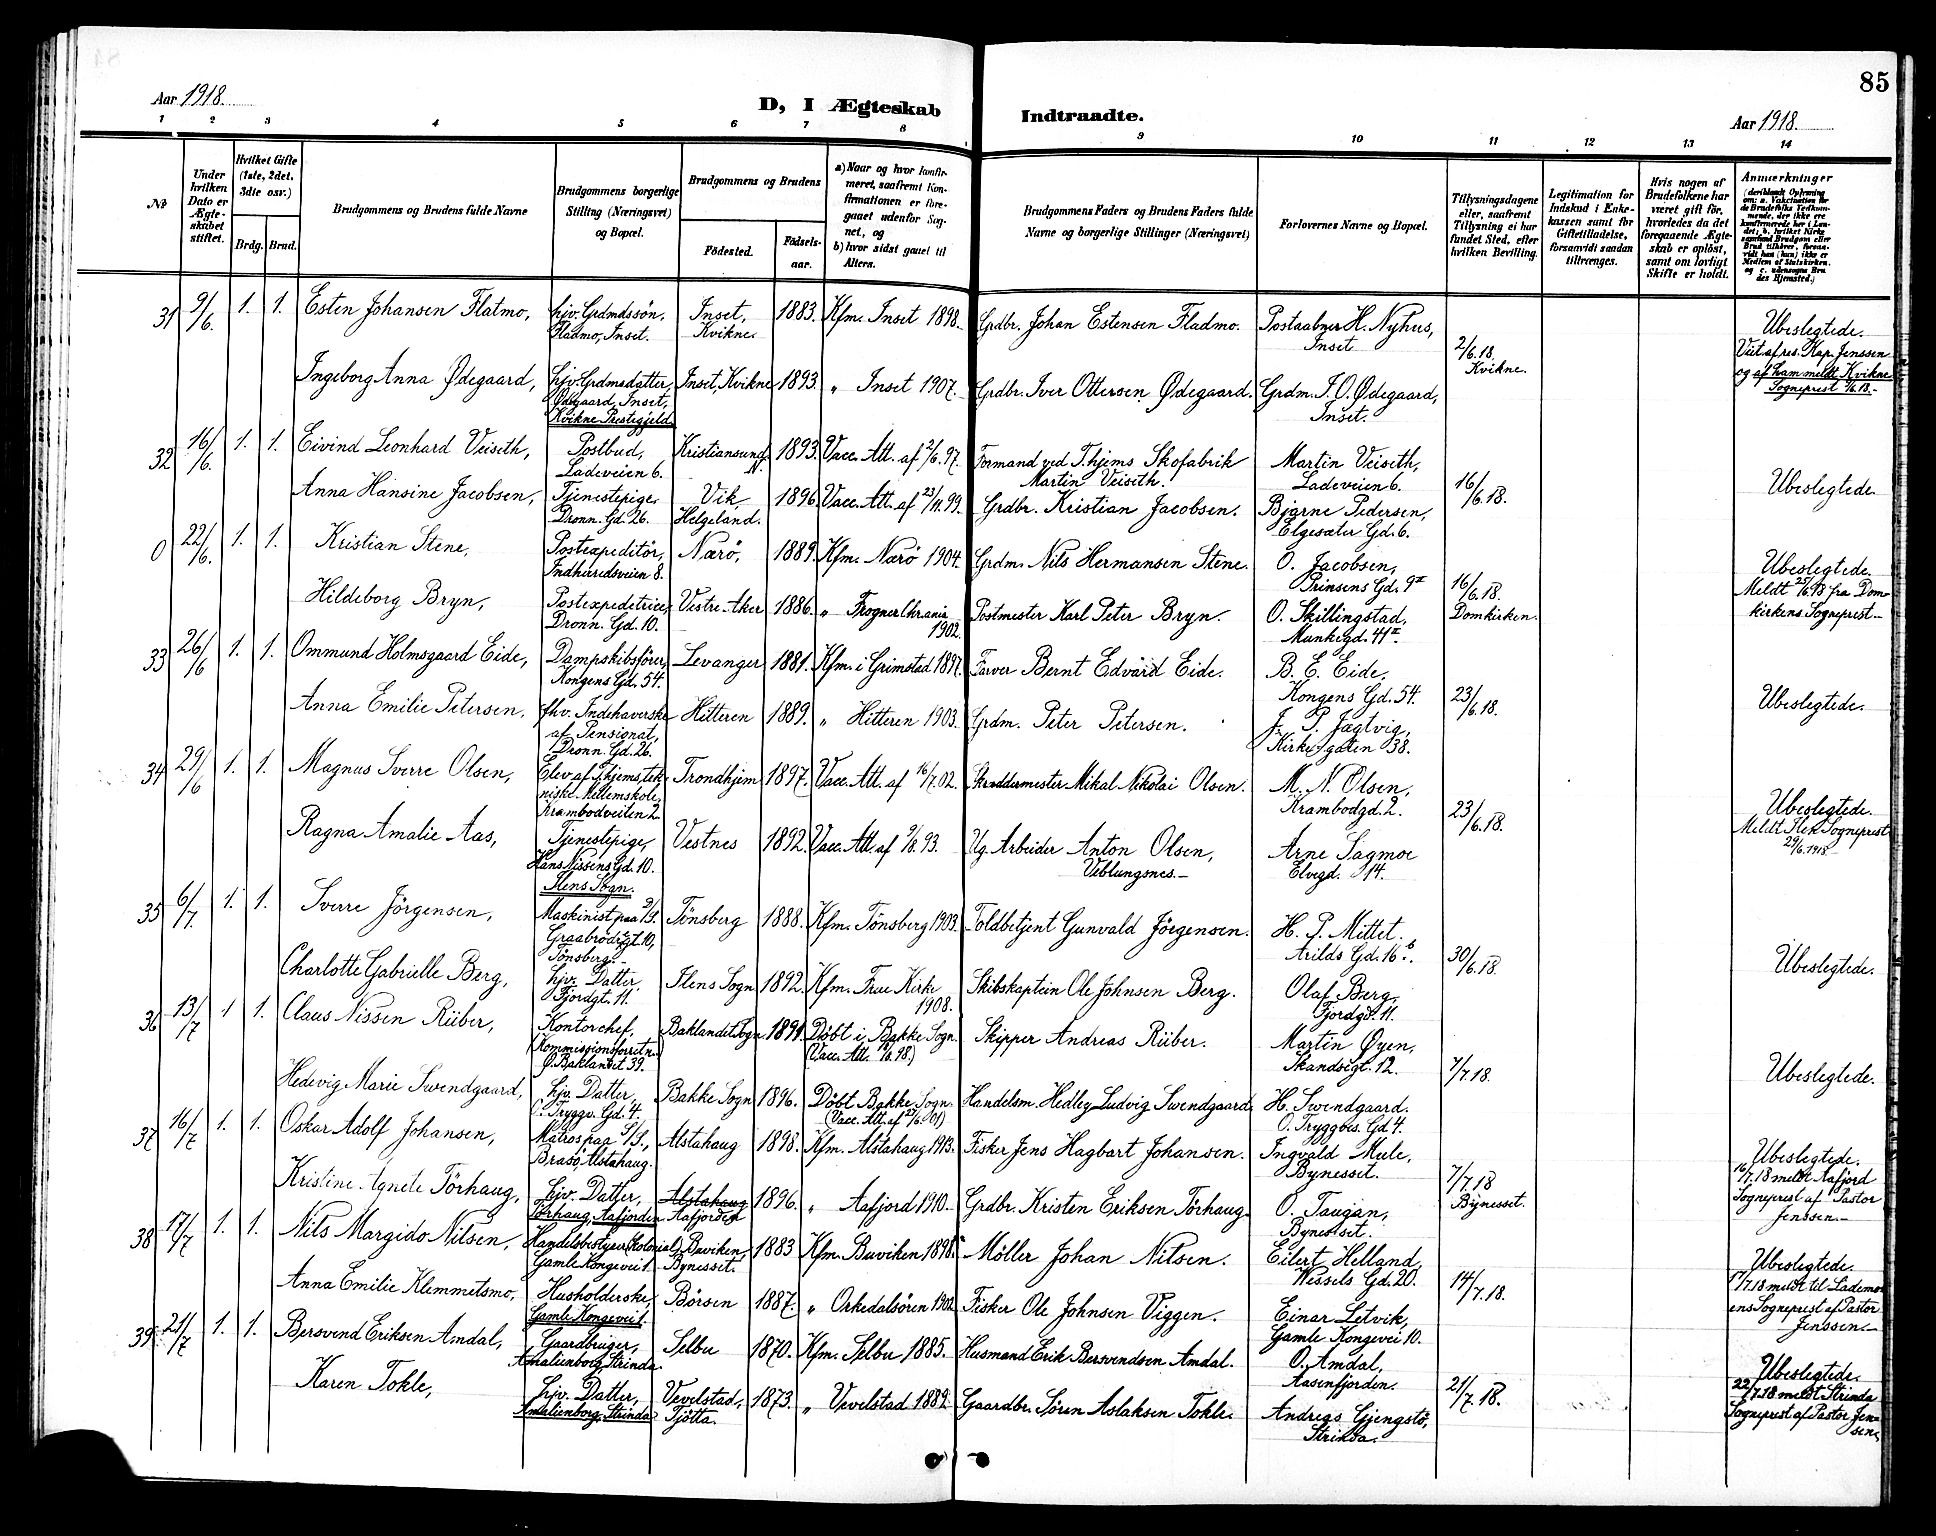 85
Aar 1918.
D, I Ægteskab Indtraadte.
Aar 1918.
1 2 3 4 5 6 7 8 9 10 11 12 13 14
No
Under hvilken Dato er Ægteskabet stiftet.
Hvilket Gifte (1ste, 2det, 3die osv.)
Brdg. Brud.
Brudgommens og Brudens fulde Navne
Brudgommens borgerlige Stilling (Næringsvei) og Bopæl.
Brudgommens og Brudens
Födested.
Födselsaar.
a) Naar og hvor konfirmeret, saafremt Konfirmationen er foregaaet udenfor Sognet, og
b) hvor sidst gaaet til Alters.
Brudgommens Faders og Brudens Faders fulde Navne og borgerlige Stillinger (Næringsvei)
Forlovernes Navne og Bopæl.
Tillysningsdagene eller, saafremt Tillysning ei har fundet Sted, efter hvilken Bevilling.
Legitimation for Indskud i Enkekassen samt for Giftetilladelse, forsaavidt saadan tiltrænges.
Hvis nogen af Brudefolkene har været gift för, hvorledes da det foregaaende Ægteskab er oplöst, samt om lovligt Skifte er holdt.
Anmærkninger
31 9/6. 1. 1. Esten Johansen Flatmo, hjv. Grdmdssön, Fladmo, Inset. Inset, Kvikne. 1883. Kfm. Inset 1898. Grdbr. Johan Estensen Fladmo. Postaabner H. Nyhus, Inset 2/6.18. Kvikne. Ubeslegtede.
Viet af res. Kap. Jenssen og af ham meldt Kvikne Sogneprest 9/6.18.-
Ingeborg Anna Ødegaard, hjv. Grdmsdatter, Ødegaard, Inset, Kvikne Prestegjeld. Inset, Kvikne 1893. „ Inset 1907. Grdbr. Iver Ottersen Ødegaard. Grdm. I. O. Ødegaard, Inset.
32 16/6. 1. 1. Eivind Leonhard Veiseth, Postbud, Ladeveien 6. Kristiansund N. 1893. Vacc. Att. af 2/6.97. Formand ved T.hjems Skofabrik Martin Veiseth. Martin Veiseth, Ladeveien 6. 16/6.18. Ubeslegtede.
Anna Hansine Jacobsen, Tjenestepige, Dronn. Gd. 26. Vik, Helgeland. 1896. Vacc. Att. af 23/11.99. Grdbr. Kristian Jacobsen. Bjarne Pedersen, Elgesæter Gd. 6.
0 22/6. 1. 1. Kristian Stene, Postexpeditör, Indherredsveien 8. Nærö, 1889. Kfm. Nærö 1904. Grdm. Nils Hermansen Stene. O. Jacobsen, Prinsens Gd. 9II 16/6.18. Domkirken. Ubeslegtede.
Meldt 25/6.18 fra Domkirkens Sogneprest-
Hildeborg Bryn, Postexpeditrice, Dronn. Gd. 10. Vestre Aker 1886. „ Frogner Chrania 1902. Postmester Karl Peter Bryn. O. Skillingstad, Munkegd. 41II.
33 26/6 1. 1. Ommund Holmsgaard Eide, Dampskibsförer, Kongens Gd. 54. Levanger 1881. Kfm. i Grimstad 1897. Farver Bernt Edvard Eide. B. E. Eide, Kongens Gd. 54. 23/6.18. Ubeslegtede.
Anna Emilie Petersen, fhv. Indehaverske af Pensionat, Dronn. Gd. 26. Hitteren 1889. „ Hitteren 1903. Grdm. Peter Petersen. J. P. Jægtvig, Kirkegaten 38.
34 29/6 1. 1. Magnus Sverre Olsen, Elev af T.hjems tekniske Mellemskole, Krambodveiten 2. Trondhjem 1897. Vacc. Att. af 16/7.02. Skræddermester Mikal Nikolai Olsen. M. N. Olsen, Krambodgd. 2. 23/6.18. Ubeslegtede.
Meldt Ilens Sogneprest 29/6.1918.-
Ragna Amalie Aas, Tjenestepige, Hans Nissens Gd. 10. Ilens Sogn. Vestnes 1892. Vacc. Att. af 9/8.93. Ug. Arbeider Anton Olsen, Veblungsnes.- Arne Sagmoe Elvegd. 14.
35 6/7. 1. 1. Sverre Jörgensen, Maskinist paa D/S. Graabrödregt. 10, Tönsberg.- Tönsberg 1888. Kfm. Tönsberg 1903. Toldbetjent Gunvald Jörgensen. H. P. Mittet. Arilds Gd. 16b. 30/6.18. Ubeslegtede.
Charlotte Gabrielle Berg, hjv. Datter, Fjordgt. 11. Ilens Sogn 1892. Kfm. Frue Kirke 1908. Skibskaptein Ole Johnsen Berg. Olaf Berg, Fjordgt. 11.
36 13/7 1 1. Claus Nissen Rüber, Kontorchef, (Kommissionsforretn.) Ø. Baklandet 39. Baklandet Sogn. 1891. Döbt i Bakke Sogn. (Vacc. Att. 98) Skipper Andreas Rüber. Martin Øyen, Skandsegt. 12. 7/7.18. Ubeslegtede.
Hedevig Marie Swendgaard, hjv. Datter, O. Tryggv. Gd. 4. Bakke Sogn 1896. Döbt Bakke Sogn. (Vacc. Att. af 27/6.01) Handelsm. Hedley Ludvig Swendgaard H. Swendgaard. O. Tryggves. Gd. 4.
37 16/7 1. 1. Oskar Adolf Johansen, Matros paa S/S., Brasö, Alstahaug. Alstahaug 1898. Kfm. Alstahaug 1913. Fisker Jens Hagbart Johansen. Ingvald Mule, Bynesset. 7/7.18 Bynesset. Ubeslegtede.
16/7.18 meldt Aafjord Sogneprest af Pastor Jenssen.-
Kristine Agnete Törhaug, hjv. Datter, Törhaug, Aafjorden Alstahaug Aafjorden 1896. „ Aafjord 1910.- Grdbr. Kristen Eriksen Törhaug. O. Taugan, Bynesset.
38 17/7 1. 1. Nils Margido Nilsen, Handelsbestyrer (Kolonial), Gamle Kongevei 1. Buviken, Bynesset. 1883 Kfm. Buviken 1898. Möller Johan Nilsen. Eilert Helland, Wessels Gd. 20. 14/7.18. Ubeslegtede.
17/7.18 meldt til Lademoens Sogneprest af Pastor Jenssen.-
Anna Emilie Klemmetsmo, Husholderske, Gamle Kongevei 1. Börsen 1887. „ Orkedalsören 1902. Fisker Ole Johnsen Viggen. Einar Letvik, Gamle Kongevei 10.
39. 21/7 1. 1. Bersvend Eriksen Amdal, Gaardbruger, Amalienborg, Strinda. Selbu 1870. Kfm. Selbu 1885. Husmand Erik Bersvendsen Amdal. O. Amdal, Aasenfjorden. 21/7.18. Ubeslegtede.
22/7.18 meldt Strinda Sogneprest af Pastor Jenssen
Karen Tokle, hjv. Datter, Amalienborg, Strinda. Vevelstad, Tjötta. 1873. „ Vevelstad 1889 Gaardbr. Sören Aslaksen Tokle. Andreas Gjengstö, Strinda.